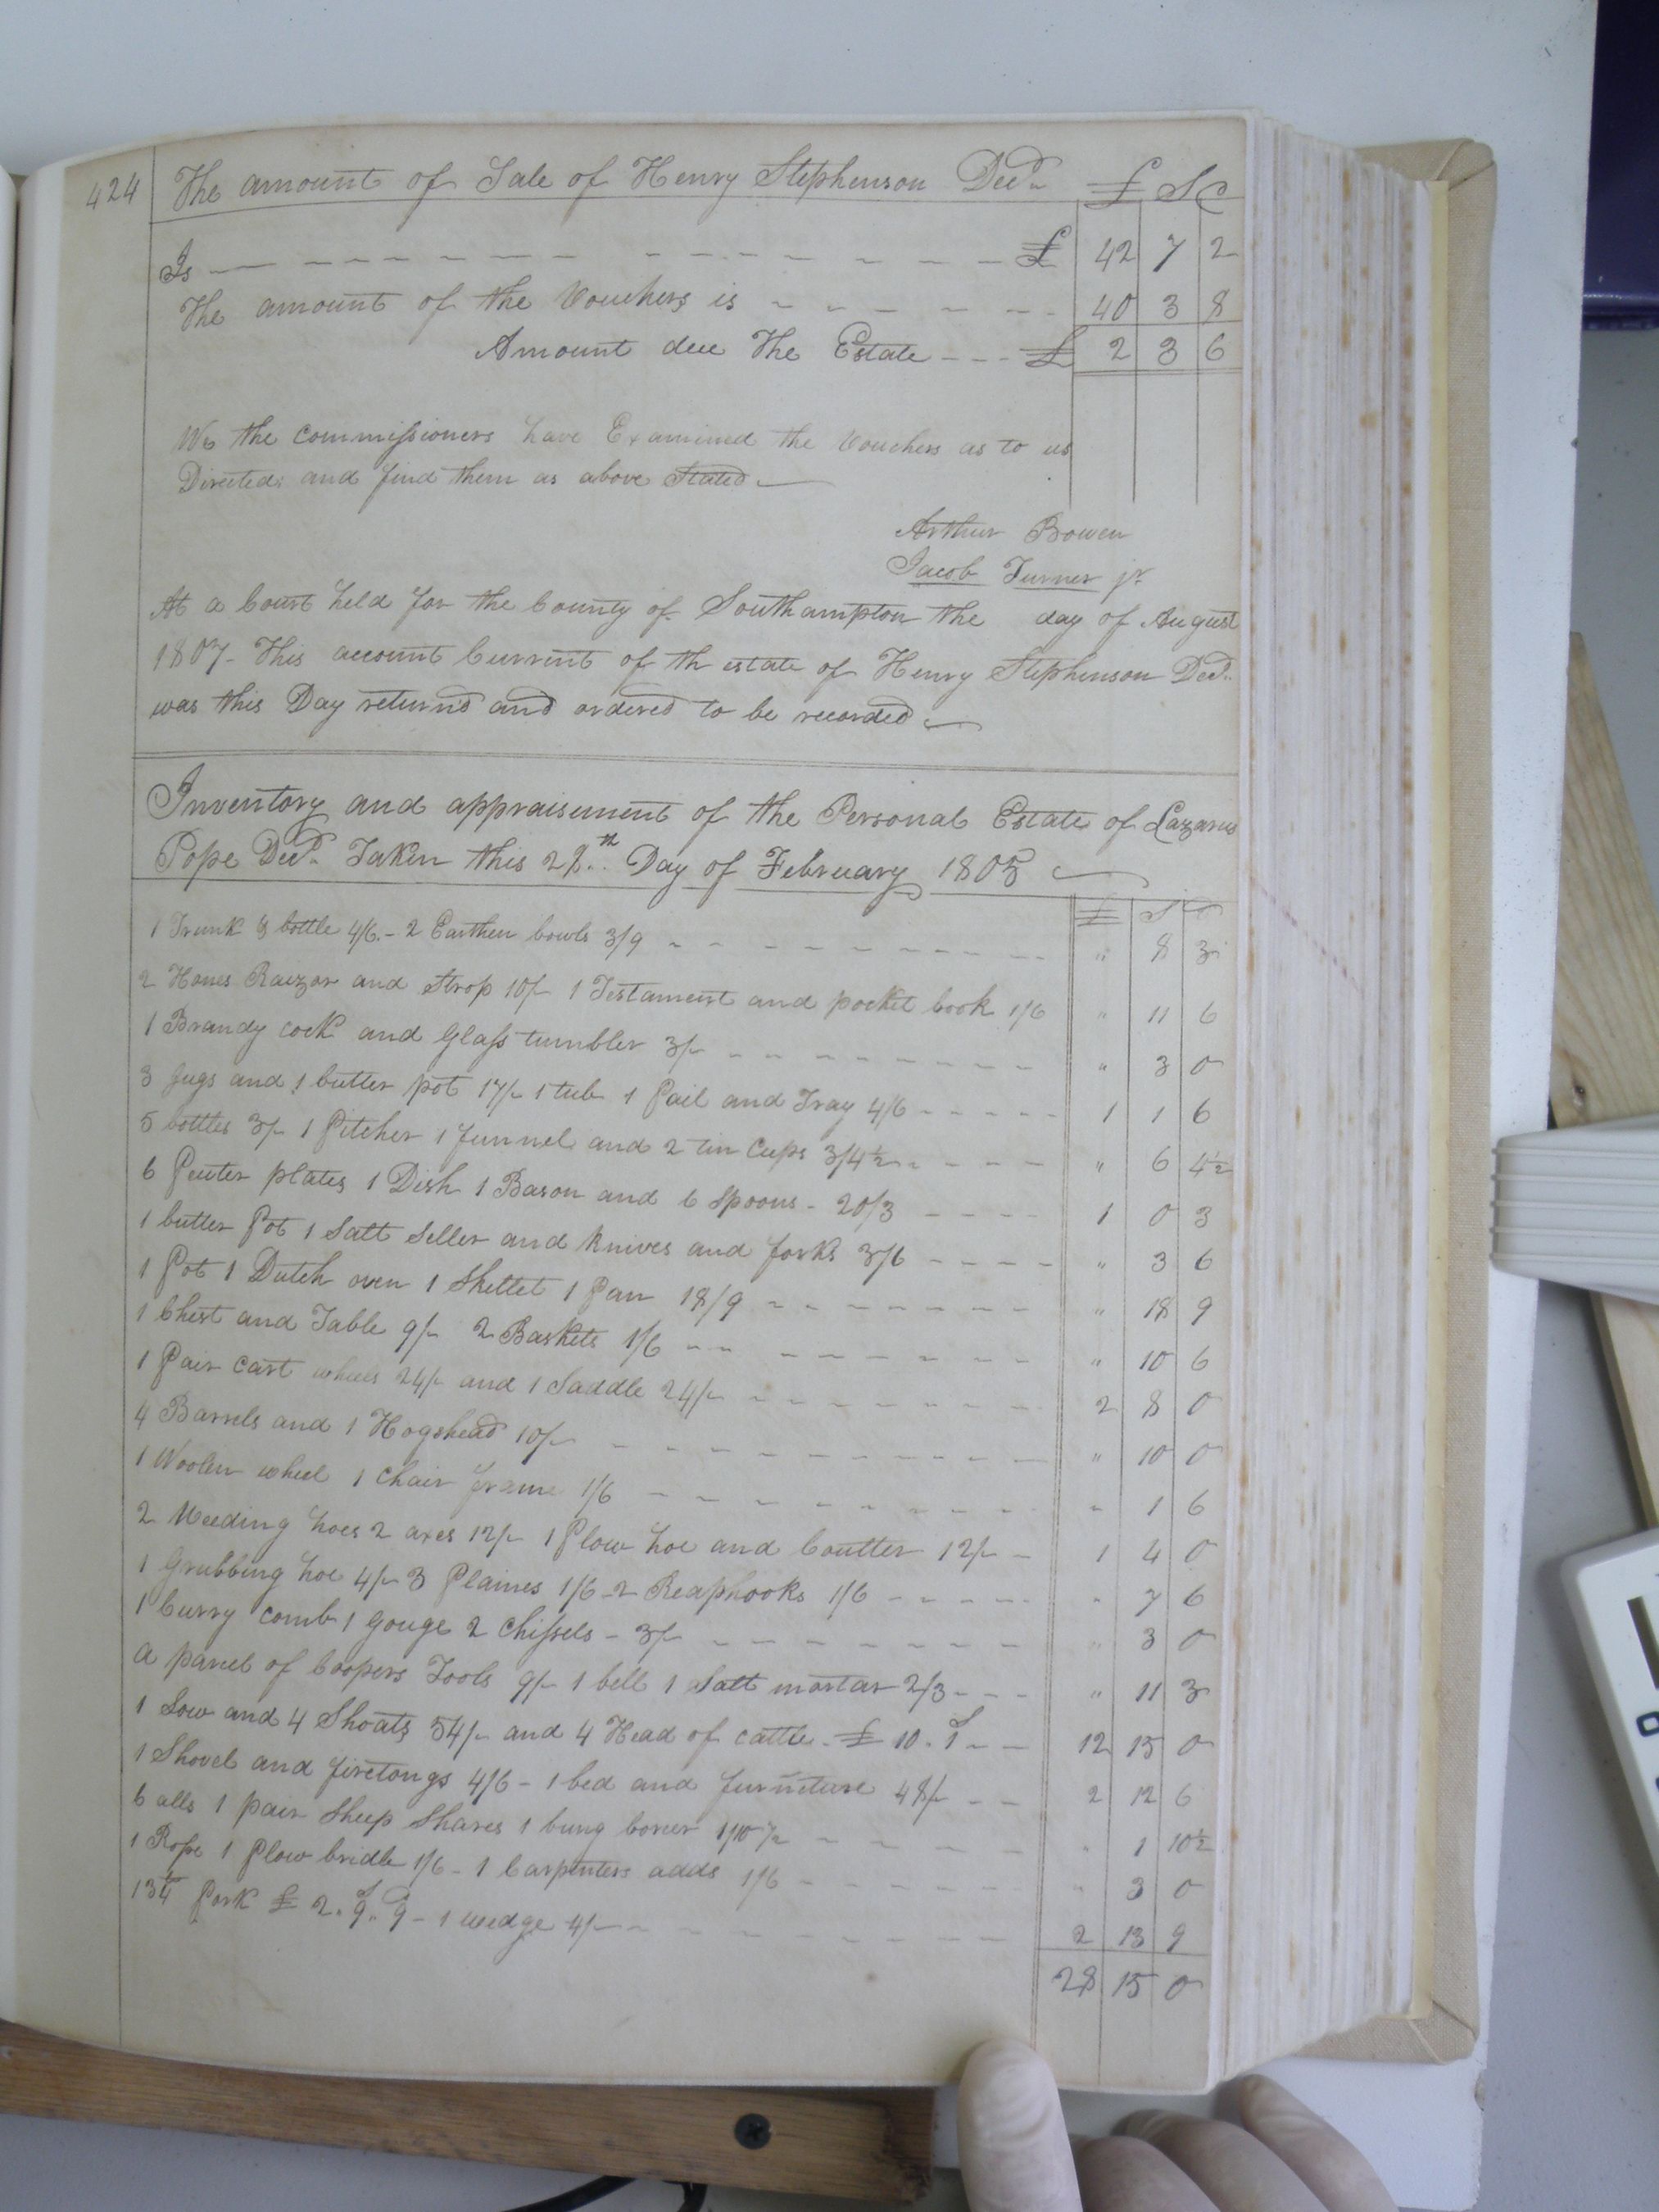 424 The amount of Sale of Henry Stephenson Decd. £ S C
Is £ 42 7 2
The amount of the Vouchers is 40 3 8
Amount due The Estate £ 2 3 6
We the Commissioners have Examined the Vouchers as to us
Directed; and find them as above Stated
Arthur Bowen
Jacob Turner jr.
At a Court held for the County of Southampton the day of August
1807. This account Current of th estate of Henry Stephenson Decd.
was this Day returnd and ordered to be recorded
Inventory and appraisement of the Personal Estate of Lazarus
Pope Decd. Taken this 28th Day of February 1805
£ S D
1 Trunk & bottle 4/6 - 2 Earthen bowls 3/9 " 8 3
2 Hones Raizor and Strop 10/- 1 Testament and pocket book 1/6 " 11 6
1 Brandy cock and Glass tumbler 3/- " 3 0
3 Jugs and 1 butter pot 17/- 1 tub 1 Pail and Tray 4/6 1 1 6
5 bottles 3/- 1 Pitcher 1 funnel and 2 tin Cups 3/4½ " 6 4½
6 Peuter plates 1 Dish 1 Bason and 6 Spoons - 20/3 1 0 3
1 butter Pot 1 Salt Seller and knives and forks 3/6 " 3 6
1 Pot 1 Dutch oven 1 Skellet 1 Pan 18/9 " 18 9
1 Chest and Table 9/- 2 Baskets 1/6 " 10 6
1 Pair cart wheels 24/- and 1 Saddle 24/- 2 8 0
4 Barrels and 1 Hogshead 10/- " 10 0
1 Woolen wheel 1 Chair frame 1/6 " 1 6
2 Weeding hoes 2 axes 12/- 1 Plow hoe and Coutter 12/- 1 4 0
1 Grubbing hoe 4/- 3 Plaines 1/6 - 2 Reaphooks 1/6 " 7 6
1 Curry Comb 1 gouge 2 Chissels - 3/- " 3 0
a parcel of Coopers Tools 9/- 1 bell 1 Salt mortar 2/3 " 11 3
1 Sow and 4 Shoats 54/- and 4 Head of cattle - £ 10. 1S 12 15 0
1 Shovel and firetongs 4/6 - 1 bed and furniture 48/- 2 12 6
6 alls 1 pair Sheep Shares 1 bung borer 1/10½ " 1 10½
1 Rope 1 Plow bridle 1/6 - 1 Carpenters adds 1/6 " 3 0
134 Pork £ 2. 9S. 9D - 1 wedge 4/- 2 13 9
28 15 0